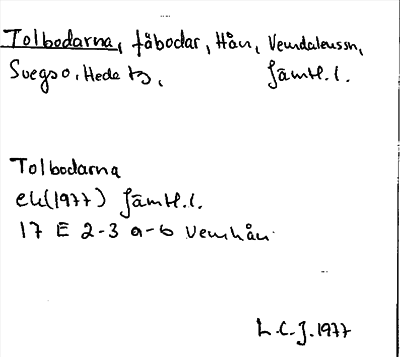 Tolbodarna, fäbodar, Hån, Vemdalenssn,
Svegs o. Hede tg, Jämtl. l.
Tolbodarna
ek(1977) Jämtl. l.
17 E 2-3 a-b Vemhån
L.C.J. 1977